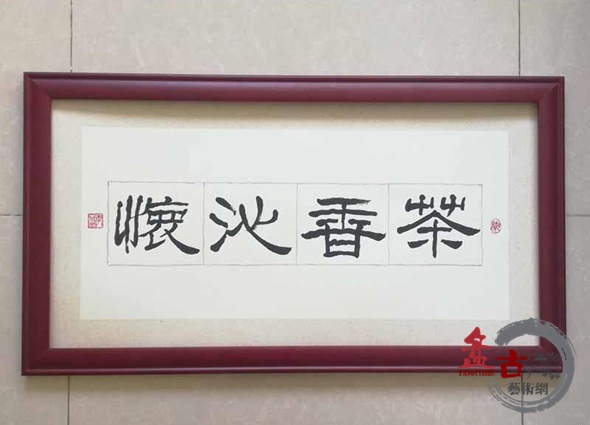 茶香沁懷
盘古
藝術網